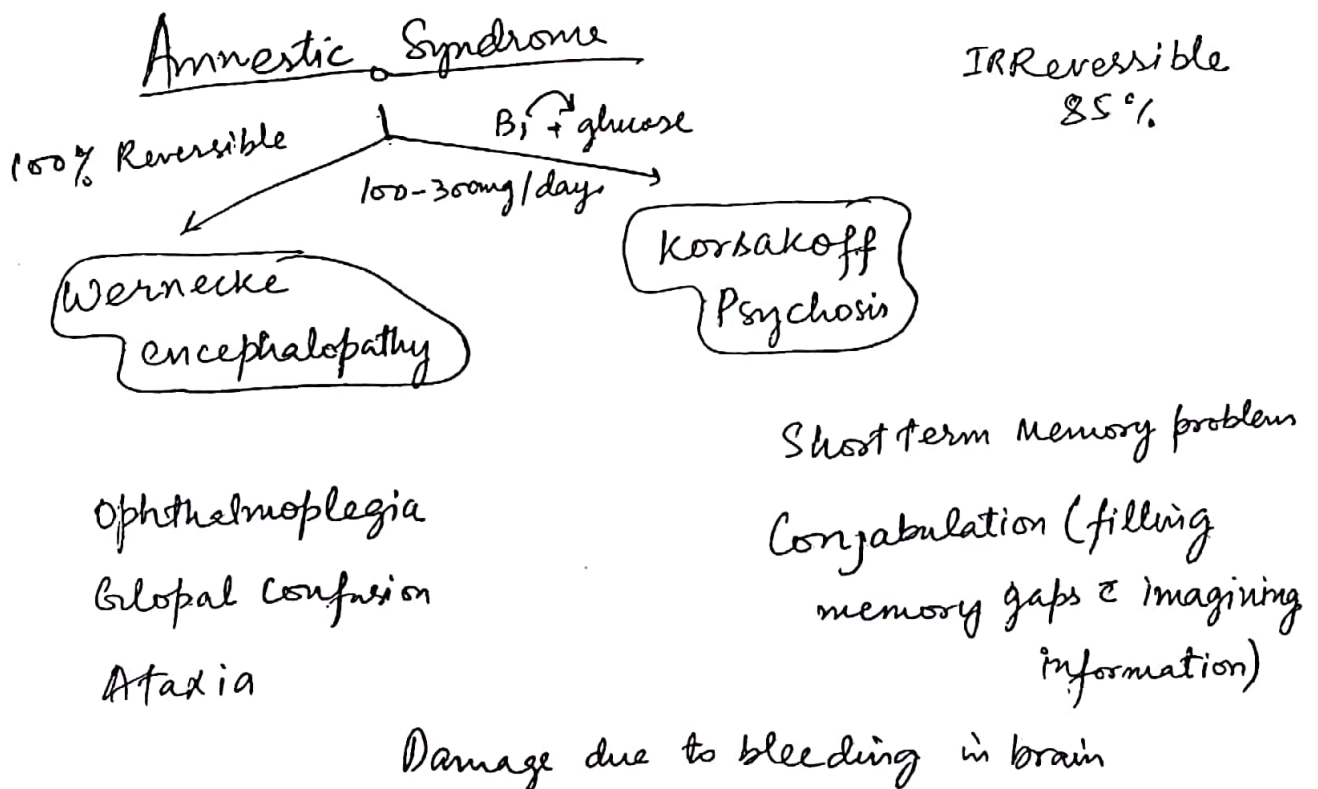 Amnestic Syndrome
IRReversible
85%
100% Reversible
B1 + glucose
100-300mg/day
Wernecke
encephalopathy
Korsakoff
Psychosis
Short term Memory problem
Ophthalmoplegia
Conjabulation (filling
Glopal Confusion
memory gaps c̄ imagining
information)
Ataxia
Damage due to bleeding in brain